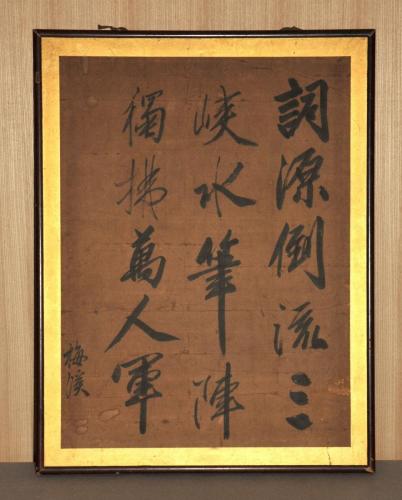 詞源倒流三
峡水筆陣
獨掃萬人軍
梅溪